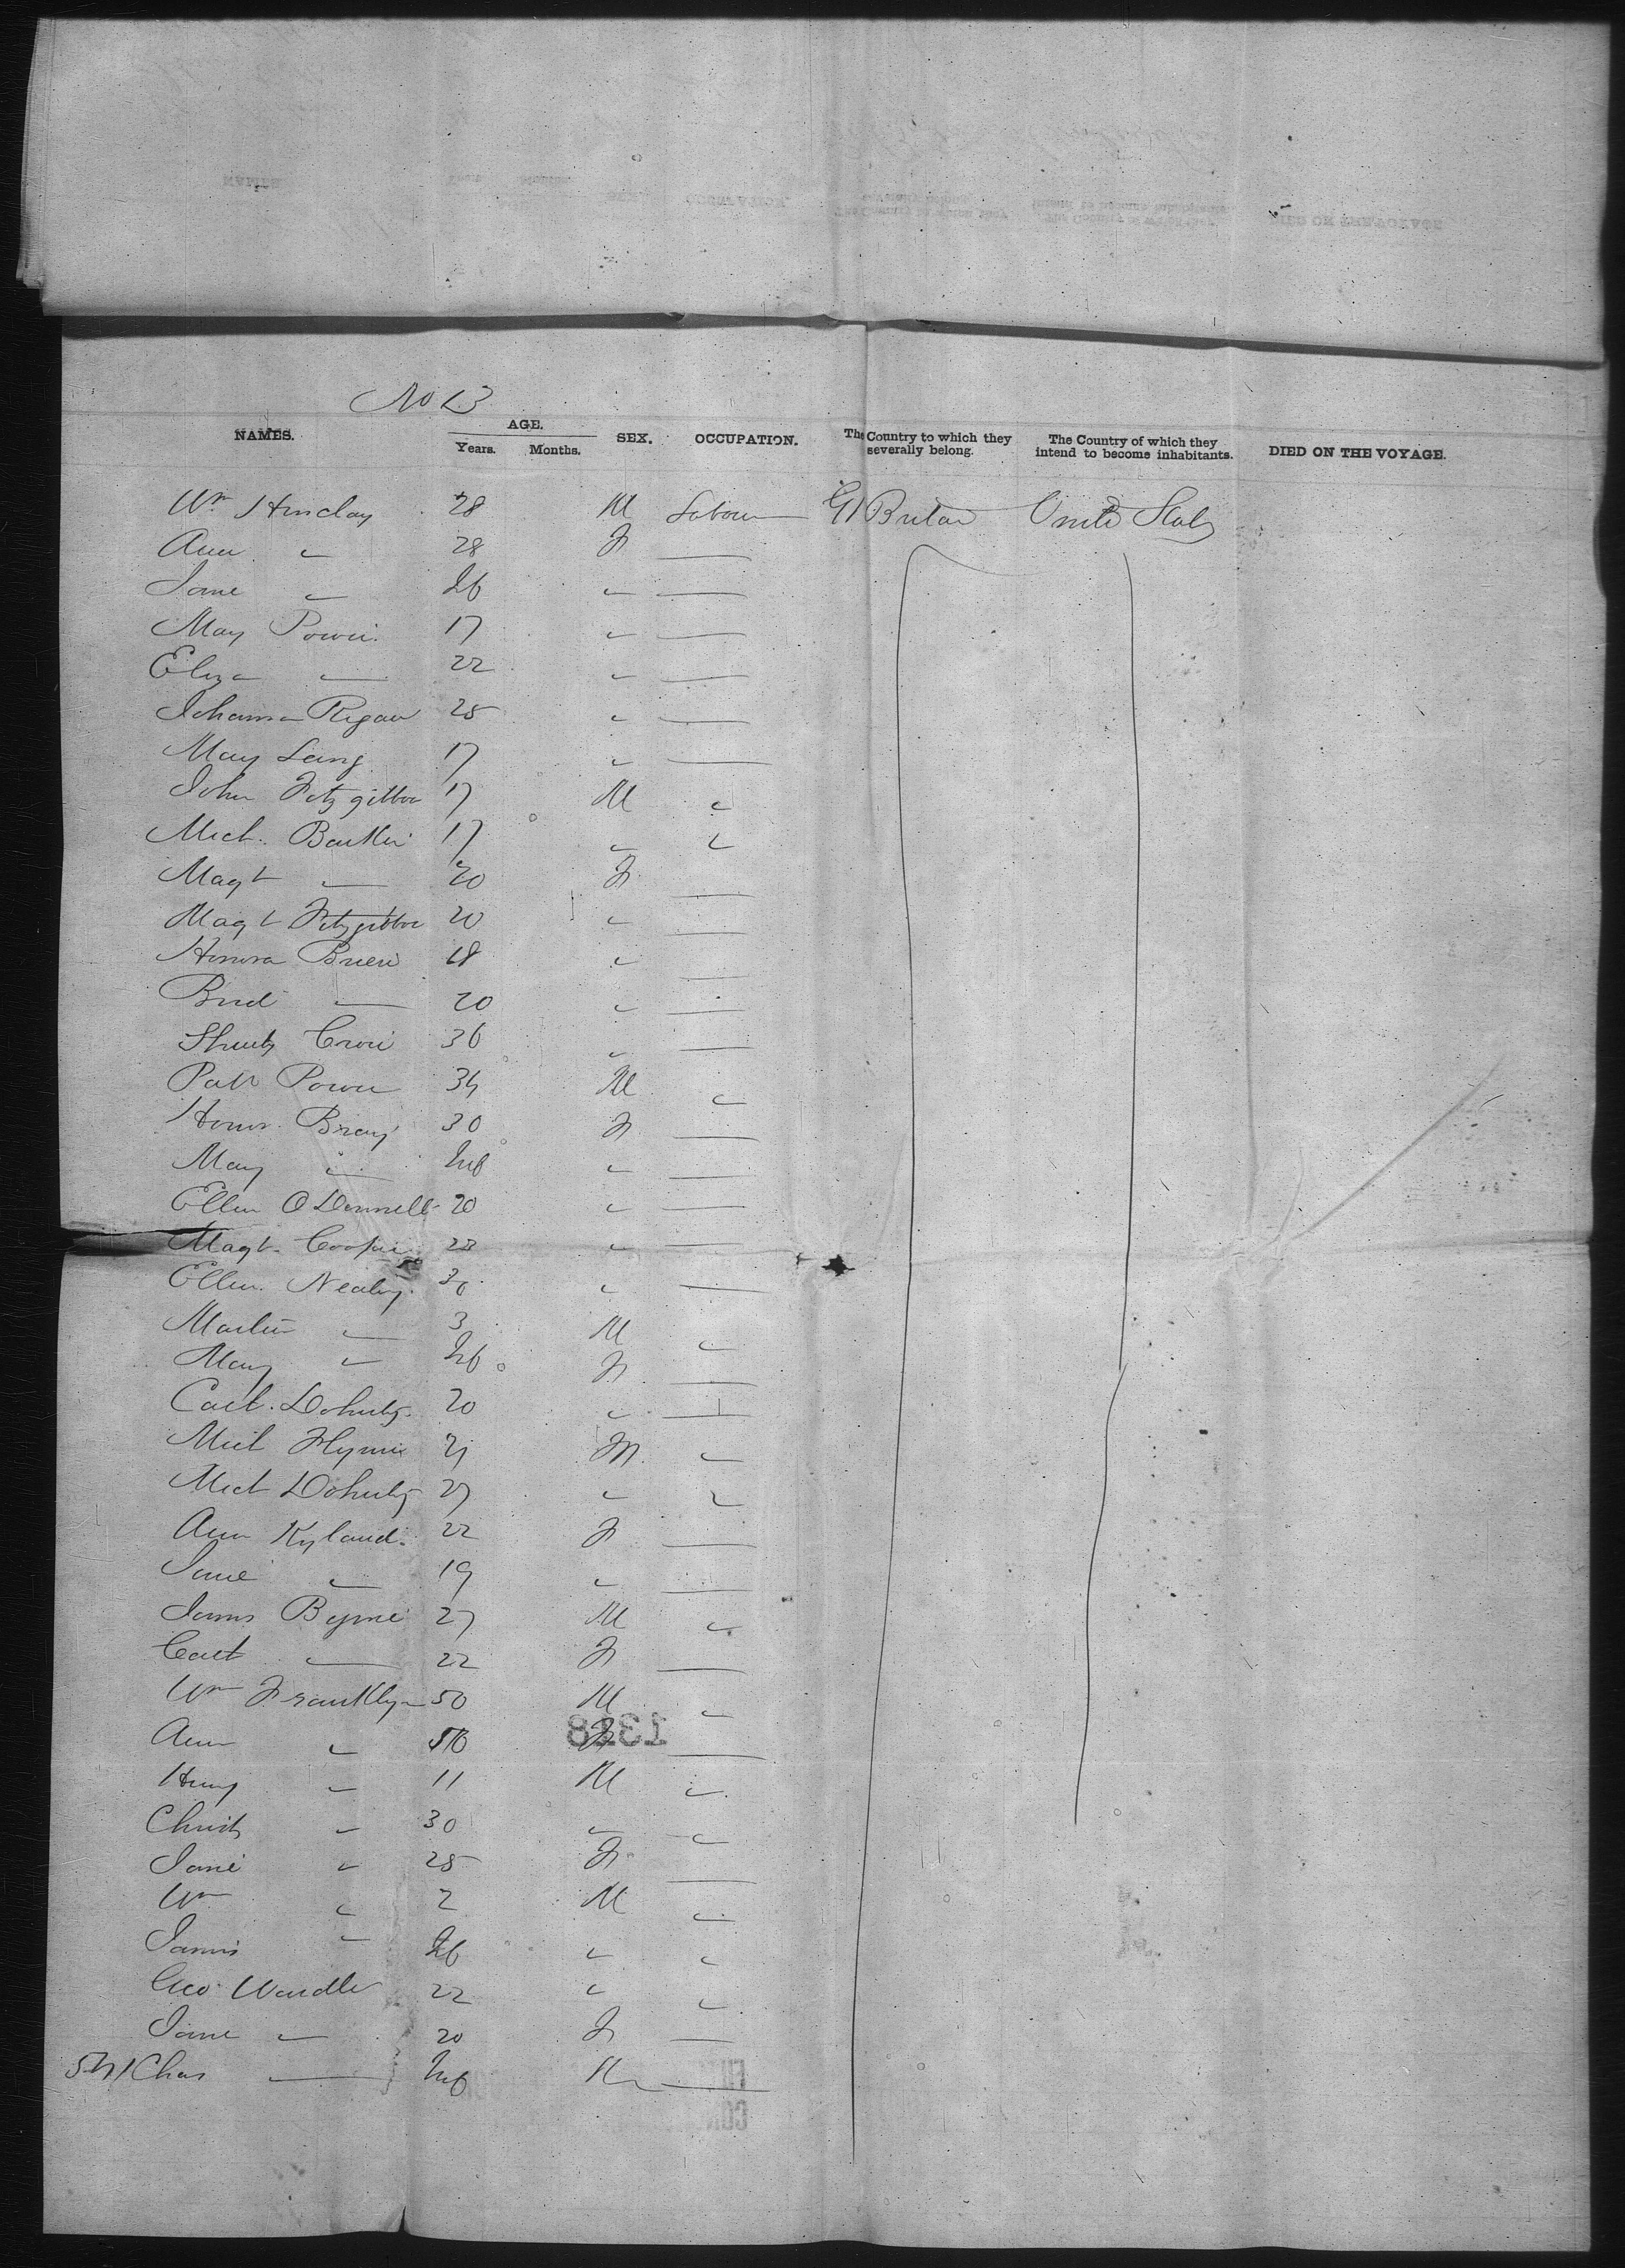 No 13
NAMES. AGE. SEX. OCCUPATION. The Country to which they severally belong. The Country of which they intend to become inhabitants. DIED ON THE VOYAGE.
Years. Months.
Wm Hinclay 28 M Labour Gt Britan United States
Ann " 28 F
Jane " Inf "
Mary Power 17 "
Eliza — 22 "
Johanna Regan 25 "
Mary Lang 17 "
John Fitzgibbon 17 M "
Mich. Bartler 17 " "
Magt — 20 F
Magt Fitzgibbon 20 "
Honora Brien 18 "
Brid — 20 "
36 "
Patk Power 34 M "
Honor Bray 30 F
Mary " Inf "
Ellen O Donnell 20 "
Magt Cooper 22 "
Ellen Nealey 30 "
Martin — 3 M "
Mary " Inf F
Cath. Doherty 20 "
Mich Flynn 21 M "
Mich Doherty 27 " "
Ann Ryland 22 F
Jane " 19 "
James Byrne 27 M "
Cath — 22 F
Wm Franklyn 50 M "
Ann " 50 F
Henry " 11 M "
Christ " 30 " "
Jane " 25 F
Wm " 2 M "
James " Inf " "
Geo Wardle 22 " "
Jane " 20 F
541 Chas — Inf M
1318